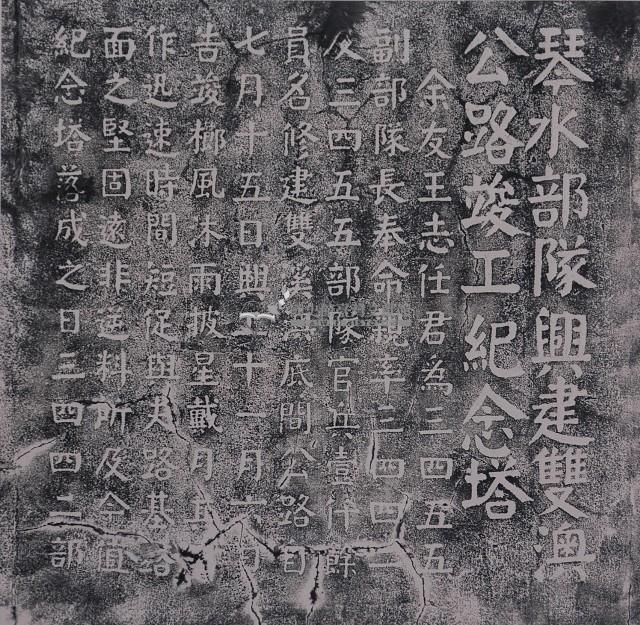 琴水部隊興建雙澳
公路竣工紀念塔
余友王志任君為三四五五
副部隊長奉命親率三四四二
及三四五五部隊官兵壹仟餘
員名修建雙溪澳底間公路自
七月十五日興工十一月六日
告竣櫛風沐雨披星戴月其
作迅速時間短促與夫路基路
面之堅固遠非逆料所及今值
紀念塔落成之日三四四二部